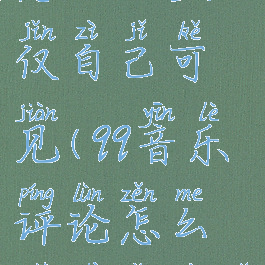 jǐn zì jǐ kě
仅自己可
jiàn yīn lè
见(99音乐
píng lùn zěn me
评论怎么